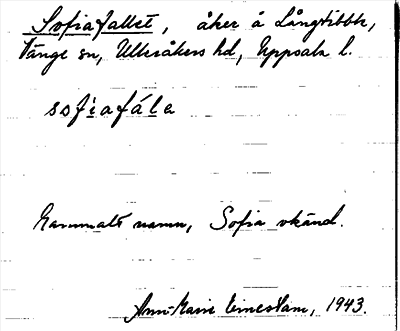 Sofiafallet, åker å Långtibble,
Vänge sn, Ulleråkers hd, Uppsala l.
sofiafála
Gammalt namn, Sofia okänd.
Ann-Marie, 1943.